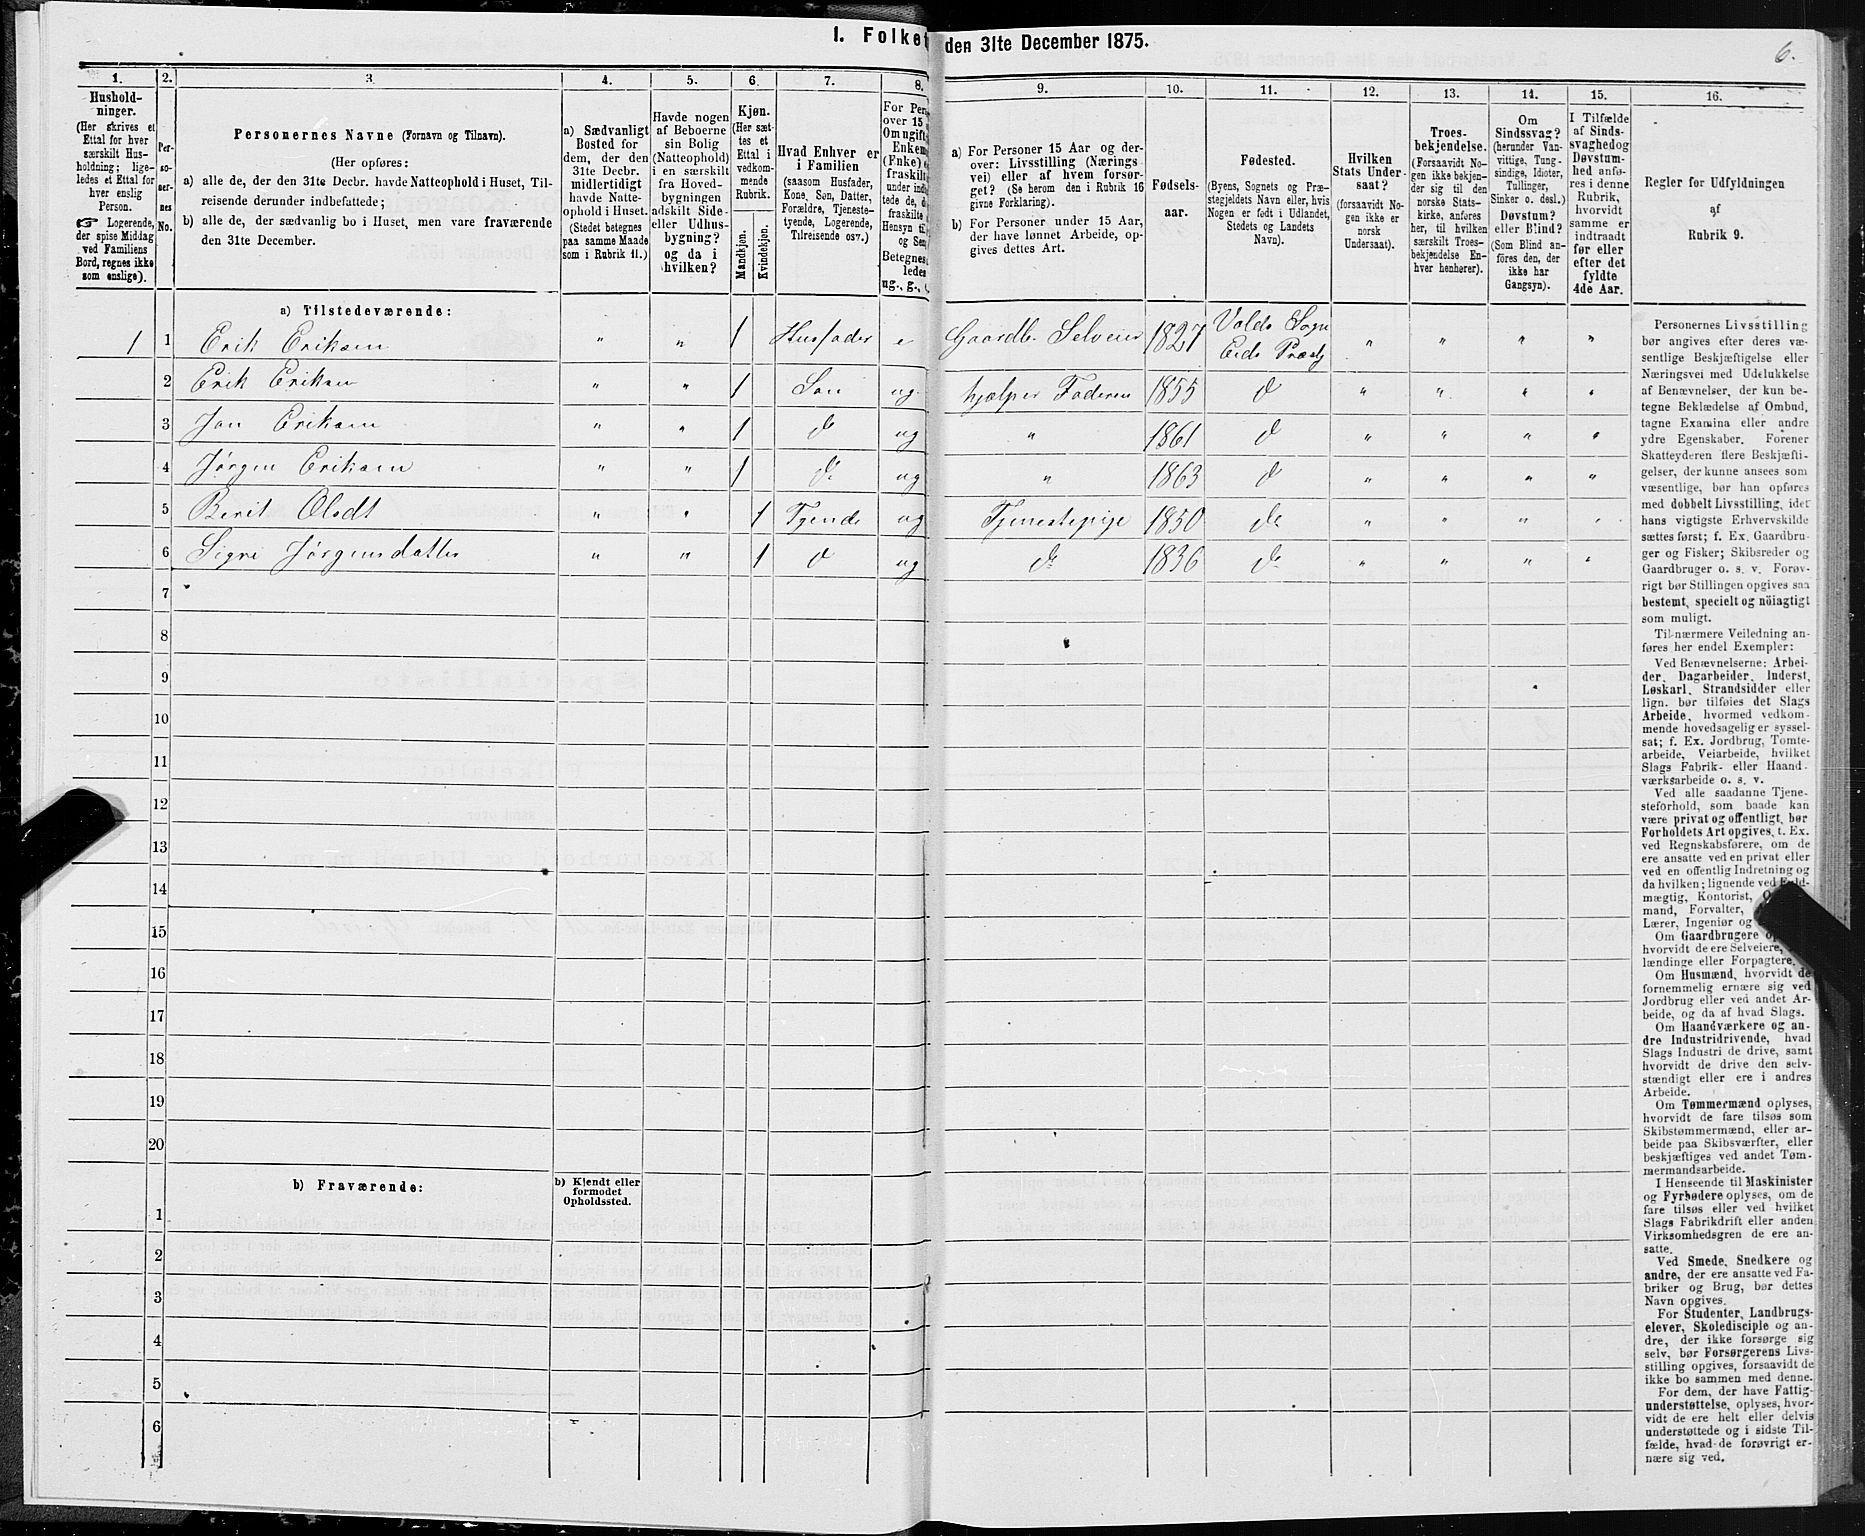 I. Folket
den 31te December 1875.
6.
1. 2. 3. 4. 5. 6. 7. 8.
Hushold-
ninger.
(Her skrives et
Ettal for hver
særskilt Hus-
holdning; lige-
ledes et Ettal for
hver enslig
Person.
☞ Logerende,
der spise Middag
ved Familiens
Bord, regnes ikke
som enslige).
Per-
so-
ner-
nes
No.
Personernes Navne (Fornavn og Tilnavn).
(Her opføres:
a) alle de, der den 31te Decbr. havde Natteophold i Huset, Til-
reisende derunder indbefattede;
b) alle de, der sædvanlig bo i Huset, men vare fraværende
den 31te December.
a) Sædvanligt
Bosted for
dem, der den
31te Decbr.
midlertidigt
havde Natte-
ophold i Huset.
(Stedet betegnes
paa samme Maade
som i Rubrik 11.)
Havde nogen
af Beboerne
sin Bolig
(Natteophold)
i en særskilt
fra Hoved-
bygningen
adskilt Side-
eller Udhus-
bygning?
og da i
hvilken?
Kjøn.
(Her sæt-
tes et
Ettal i
vedkom-
mende
Rubrik.
Mandkjøn.
Kvindekjøn.
Hvad Enhver er
i Familien
(saasom Husfader,
Kone, Søn, Datter,
Forældre, Tjeneste-
tyende, Logerende,
Tilreisende osv.).
For Per
over 15
Om ugift
Enkem
(Fnke)
fraskilt
under ind
tede de, d
fraskilte
Hensyn til
og Sen
Betegnes
ledes
ug., g.,
9. 10. 11. 12. 13. 14. 15. 16.
a) For Personer 15 Aar og der-
over: Livsstilling (Nærings-
vei) eller af hvem forsør-
get? (Se herom den i Rubrik 16
givne Forklaring).
b) For Personer under 15 Aar,
der have lønnet Arbeide, op-
gives dettes Art.
Fødsels-
aar.
Fødested.
(Byens, Sognets og Præ-
stegjeldets Navn eller, hvis
Nogen er født i Udlandet,
Stedets og Landets
Navn).
Hvilken
Stats Under-
saat?
(forsaavidt No-
gen ikke er
norsk
Undersaat).
Troes-
bekjendelse.
(Forsaavidt No-
gen ikke bekjen-
der sig til den
norske Stats-
kirke, anføres
her, til hvilken
særskilt Troes-
bekjendelse En-
hver henhører).
Om
Sindssvag?
(herunder Van-
vittige, Tung-
sindige, Idioter,
Tullinger,
Sinker o. desl.)
Døvstum?
eller Blind?
(Som Blind an-
føres den, der
ikke har
Gangsyn).
I Tilfælde
af Sinds-
svaghed og
Døvstum-
hed anfø-
res i denne
Rubrik,
hvorvidt
samme er
indtraadt
før eller
efter det
fyldte
4de Aar.
Regler for Udfyldningen
af
Rubrik 9.
a) Tilstedeværende:
1 1 Erik Eriksen " " 1 Husfader e Gaardb. Selveier 1827 Volds Sogn
Eids Præstg " " " "
2 Erik Eriksen " " 1 Søn ug. hjælper Faderen 1855 d " " " "
3 Jon Eriksen " " 1 do ug " 1861 d " " " "
4 Jørgen Eriksen " " 1 do ug " 1863 d " " " "
5 Berit Olsdt " " 1 Tyende ug Tjenestepige 1850 do " " " "
6 Signe Jørgensdatter " " 1 d ug do 1836 do " " " "
7
8
9
10
11
12
13
14
15
16
17
18
19
20
b) Fraværende:
b) Kjendt eller
formodet
Opholdssted.
1
2
3
4
5
6
Personernes Livsstilling
bør angives efter deres væ-
sentlige Beskjæftigelse eller
Næringsvei med Udelukkelse
af Benævnelser, der kun be-
tegne Beklædelse af Ombud,
tagne Examina eller andre
ydre Egenskaber. Forener
Skatteyderen flere Beskjæfti-
gelser, der kunne ansees som
væsentlige, bør han opføres
med dobbelt Livsstilling, idet
hans vigtigste Erhvervskilde
sættes først; f. Ex. Gaardbru-
ger og Fisker; Skibsreder og
Gaardbruger o. s. v. Forøv-
rigt bør Stillingen opgives saa
bestemt, specielt og nöiagtigt
som muligt.
Til nærmere Veiledning an-
føres her endel Exempler:
Ved Benævnelserne: Arbei-
der, Dagarbeider, Inderst,
Løskarl, Strandsidder eller
lign. bør tilføies det Slags
Arbeide, hvormed vedkom-
mende hovedsagelig er syssel-
sat; f. Ex. Jordbrug, Tomte-
arbeide, Veiarbeide, hvilket
Slags Fabrik- eller Haand-
værksarbeide o. s. v.
Ved alle saadanne Tjene-
steforhold, som baade kan
være privat og offentligt, bør
Forholdets Art opgives, t. Ex.
ved Regnskabsførere, om de
ere ansatte ved en privat eller
ved en offentlig Indretning og
da hvilken; lignende ved Fuld-
mægtig, Kontorist,
mand, Forvalter,
Lærer, Ingeniør og
Om Gaardbrugere
hvorvidt de ere Selveiere,
lændinge eller Forpagtere.
Om Husmænd, hvorvidt de
fornemmelig ernære sig ved
Jordbrug eller ved andet Ar-
beide, og da af hvad Slags.
Om Haandværkere og an-
dre Industridrivende, hvad
Slags Industri de drive, samt
hvorvidt de drive den selv-
stændigt eller ere i andres
Arbeide.
Om Tømmermænd oplyses,
hvorvidt de fare tilsøs som
Skibstømmermænd, eller ar-
beide paa Skibsværfter, eller
beskjæftiges ved andet Tøm-
mermandsarbeide.
I Henseende til Maskinister
og Fyrbødere oplyses, om de
fare tilsøs eller ved hvilket
Slags Fabrikdrift eller anden
Virksomhedsgren de ere an-
satte.
Ved Smede, Snedkere og
andre, der ere ansatte ved Fa-
briker og Brug, bør dettes
Navn opgives.
For Studenter, Landbrugs-
elever, Skoledisciple og an-
dre, der ikke forsørge sig
selv, bør Forsørgerens Livs-
stilling opgives, forsaavidt de
ikke bo sammen med denne.
For dem, der have Fattig-
understøttelse, oplyses, hvor-
vidt de ere helt eller delvis
understøttede og i sidste Til-
fælde, hvad de forøvrigt er-
nære sig ved.